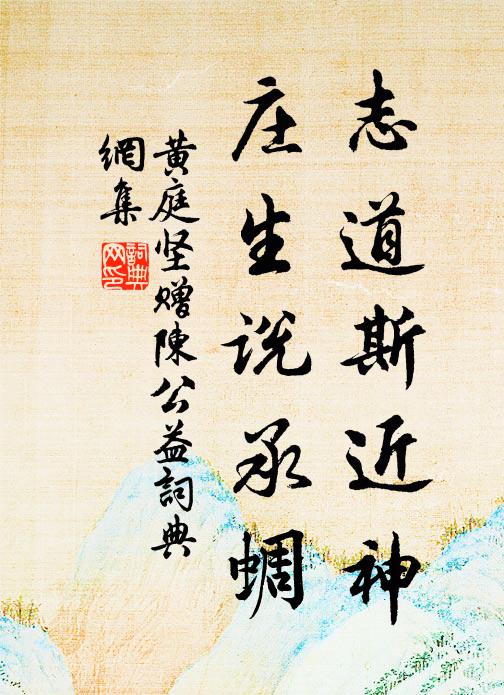 志道斯近神
庄生说承蜩
黄庭坚赠陳公益詞典
網集
詞典
网印